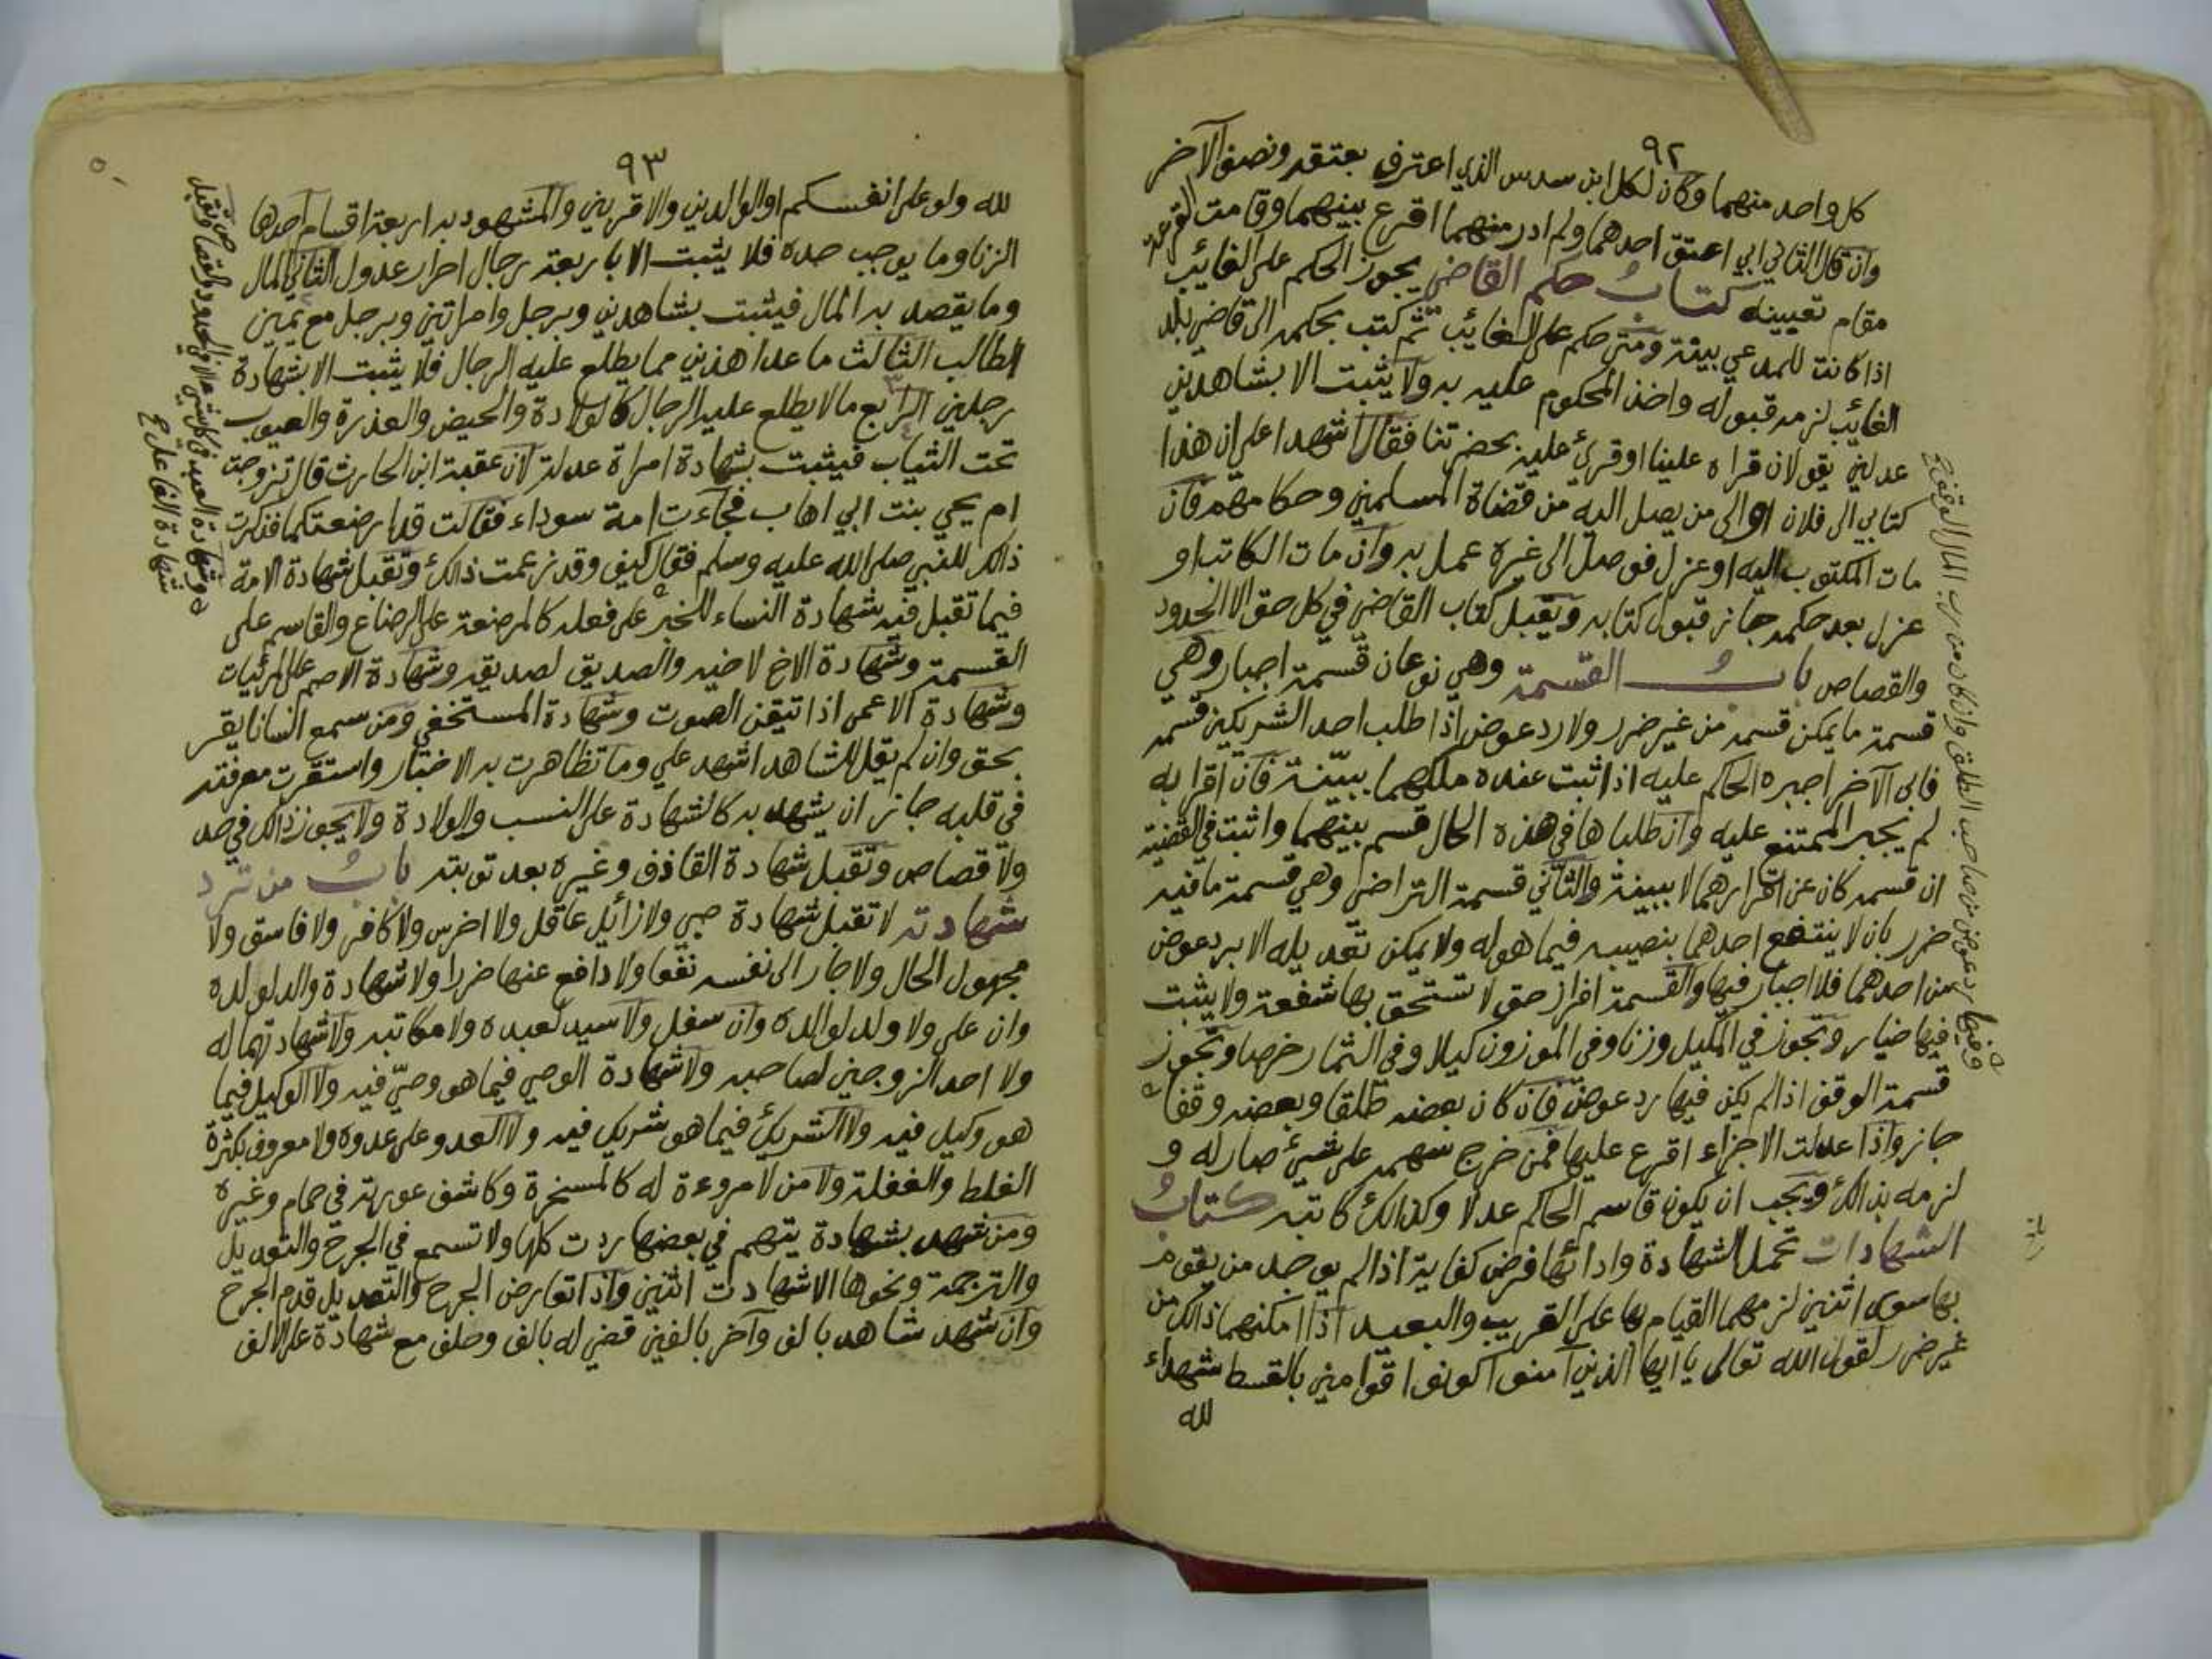 ٩٢
كل واحد منهما وكان لكل ابن سدس الذي اعترف بعتقه ونصف الآخر
وان قال الثاني ابي اعتق احدهما ولم ادر منهما اقرع بينهما وقامت القرعة
مقام تعيينه كتاب حكم القاضي يجوز الحكم على الغائب
اذا كانت للمدعي بينة ومتى حكم على الغائب ثم كتب بحكمه الى قاضي بلد
الغائب لزمه قبوله واخذ المحكوم عليه به ولا يثبت الا بشاهدين
عدلين يقولان قراه علينا او قرئ عليه بحضرتنا فقال اشهدا على ان هذا
كتابي الى فلان او الى من يصل اليه من قضاة المسلمين وحكامهم فان
مات المكتوب اليه او عزل فوصل الى غيره عمل به وان مات الكاتب او
عزل بعد حكمه جاز قبول كتابه ويقبل كتاب القاضي في كل حق الا الحدود
والقصاص باب القسمة وهي نوعان قسمة اجبار وهي
قسمة ما يمكن قسمه من غير ضرر ولا رد عوض اذا طلب احد الشريكين قسمه
فابى الآخر اجبره الحاكم عليه اذا ثبت عنده ملكهما ببينة فان اقرا به
لم يجبر الممتنع عليه وان طلباها في هذه الحال قسم بينهما واثبت في القضية
ان قسمه كان عن اقرارهما لا ببينة والثاني قسمة التراضي وهي قسمة ما فيه
ضرر بان لا ينتفع احدهما بنصيبه فيما هو له ولا يمكن تعديله الا برد عوض
من احدهما فلا اجبار فيها والقسمة افراز حق لا تستحق بها شفعة ولا يثبت
فيها خيار وتجوز في المكيل وزنا وفي الموزون كيلا وفي الثمار خرصا وتجوز
قسمة الوقف اذا لم يكن فيها رد عوض فان كان بعضه طلقا وبعضه وقفا
جاز واذا عدلت الاجزاء اقرع عليها فمن خرج سهمه على شيئ صار له و
لزمه بذالك ويجب ان يكون قاسم الحاكم عدلا وكذالك كاتبه كتاب
الشهادات تحمل الشهادة وادائها فرض كفاية اذا لم يوجد من يقوم
بها سوى اثنين لزمهما القيام بها على القريب والبعيد اذا امكنهما ذالك من
غير ضرر لقول الله تعالى يا ايها الذين آمنوا كونوا قوامين بالقسط شهداء
لله
وفيها رد عوض من صاحب الطلق وان كان من رب المال الوقف
٩٣
لله ولو على انفسكم او الوالدين والاقربين والمشهود به اربعة اقسام احدها
الزنا وما يوجب حده فلا يثبت الا باربعة رجال احرار عدول الثاني المال
وما يقصد به المال فيثبت بشاهدين وبرجل وامراتين وبرجل مع يمين
الطالب الثالث ما عدا هذين مما يطلع عليه الرجال فلا يثبت الا بشهادة
رجلين الرابع ما لا يطلع عليه الرجال كالولادة والحيض والعذرة والعيوب
تحت الثياب فيثبت بشهادة امراة عدلة لان عقبة ابن الحارث قال تزوجت
ام يحي بنت ابي اهاب فجاءت امة سوداء فقالت قد ارضعتكما فذكرت
ذالك للنبي صلى الله عليه وسلم فقال كيف وقد زعمت ذالك وتقبل شهادة الامة
فيما تقبل فيه شهادة النساء للخبر على فعله كالمرضعة على الرضاع والقاسم على
القسمة وشهادة الاخ لاخيه والصديق لصديقه وشهادة الاصم على المرئيات
وشهادة الاعمى اذا تيقن الصوت وشهادة المستخفي ومن سمع انسانا يقر
بحق وان لم يقل للشاهد اشهد علي وما تظاهرت به الاخبار واستقرت معرفته
في قلبه جاز ان يشهد به كالشهادة على النسب والولادة ولا يجوز ذالك في حد
ولا قصاص وتقبل شهادة القاذف وغيره بعد توبته باب من ترد
شهادته لا تقبل شهادة صبي ولا زائل عاقل ولا اخرس ولا كافر ولا فاسق ولا
مجهول الحال ولا جار الى نفسه نفعا ولا دافع عنها ضررا ولا شهادة والد لولده
وان على ولا ولد لوالده وان سفل ولا سيد لعبده ولا مكاتبه ولا شهادتهما له
ولا احد الزوجين لصاحبه ولا شهادة الوصي فيما هو وصي فيه ولا الوكيل فيما
هو وكيل فيه ولا الشريك فيما هو شريك فيه ولا العدو على عدوه ولا معروف بكثرة
الغلط والغفلة ولا من لا مروءة له كالمسخرة وكاشف عورته في حمام وغيره
ومن شهد بشهادة يتهم في بعضها ردت كلها ولا تسمع في الجرح والتعديل
والترجمة ونحوها الا شهادت اثنين واذا تعارض الجرح والتعديل قدم الجرح
وان شهد شاهد بالف وآخر بالفين قضي له بالف وحلف مع شهادة على الالف
وشهادة العبد في كل شيئ الا في الحدود والقصاص وتقبل
شهادة الفاعل